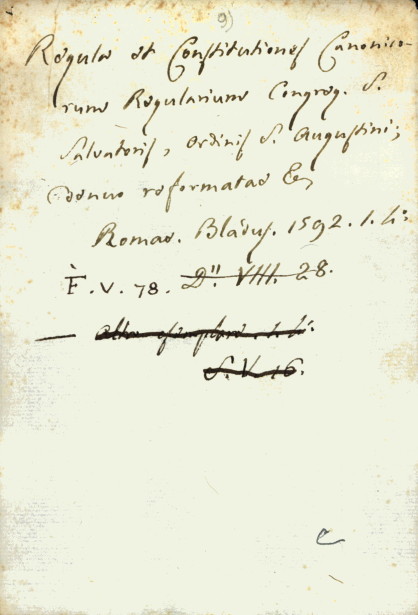 9)
Regula et Constitutiones Canonico-
rum Regularium Congreg. S.
Salvatoris, Ordinis S. Augustini;
denuo reformatae &c
Romae. Bladus. 1592. 1. 4:
F. V. 78. D" VIII. 28.
— Altro esemplare. 1. 4:
S. V. 16.
e